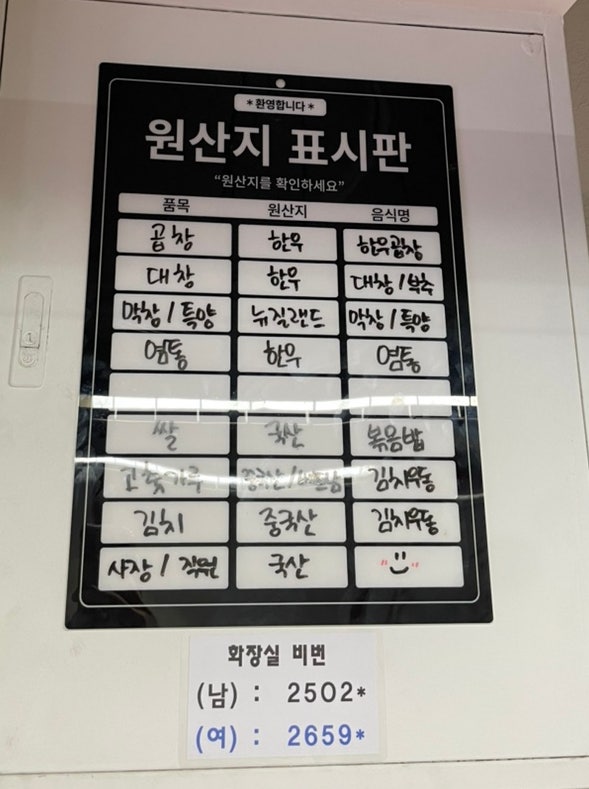 *환영합니다*
원산지 표시판
“원산지를 확인하세요”
품목 원산지 음식명
곱창 한우 한우곱창
대창 한우 대창/부추
막창/특양 뉴질랜드 막창/특양
염통 한우 염통
쌀 국산 볶음밥
고춧가루 중국산/베트남 김치우동
김치 중국산 김치우동
사장/직원 국산
화장실 비번
(남) : 2502*
(여) : 2659*